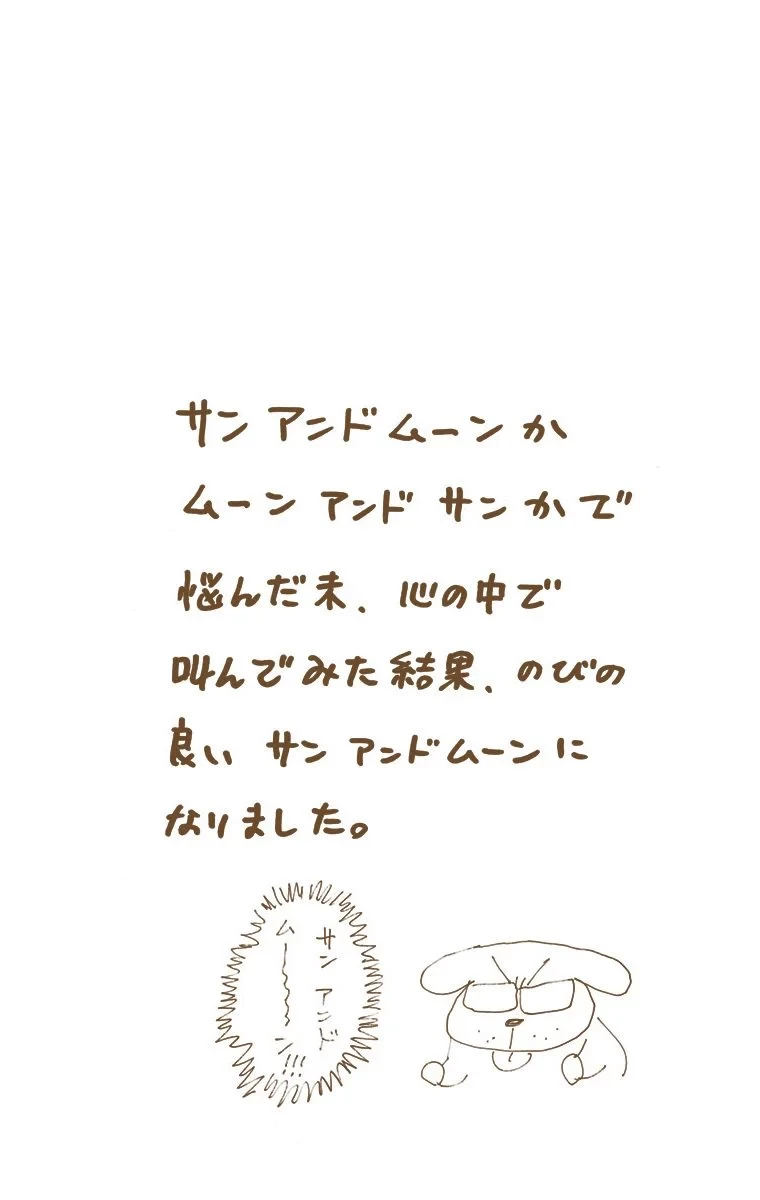 サン アンドムーンか
ムーン アンド サンかで
悩んだ末、心の中で
叫んでみた結果、のびの
良い サン アンドムーンに
なりました。
サン アンド
ム〜〜〜ン!!!